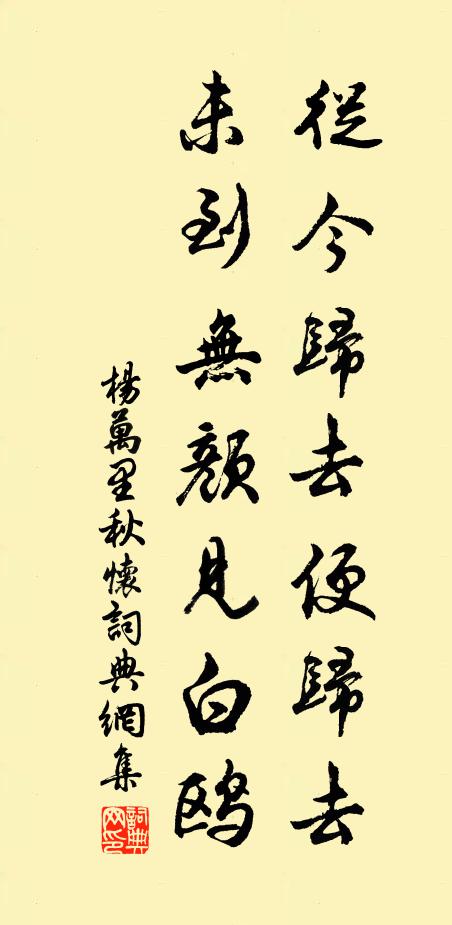 從今歸去便歸去
未到無顏見白鷗
楊萬里秋懷詞典網集
詞典网印